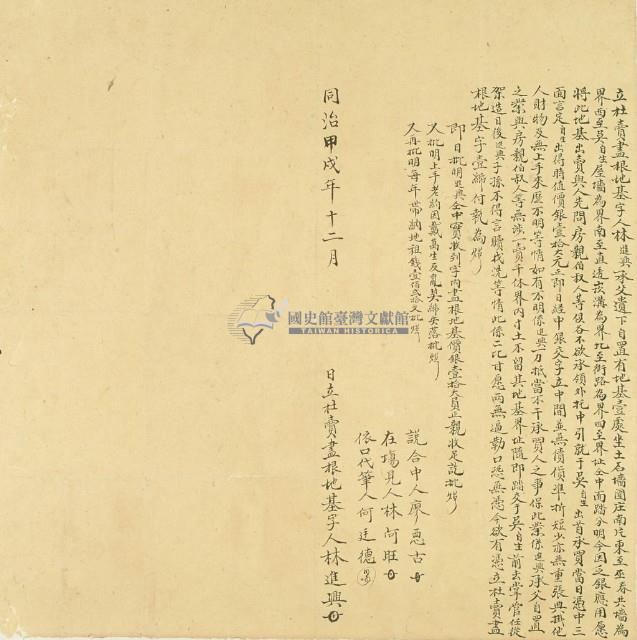 立杜賣盡根地基字人林進興承父遺下自置有地基壹處坐土石墻圍庄南片東至巫春共墻為
界西至吳自生屋墻為界南至直透崁溝為界北至街路為界四至界址仝中面踏分明今因乏銀應用愿
將此地基出賣與人先問房親伯叔人等俱各不欲承領外托中引就于吳自生出首承買當日憑中三
面言定自生出得時值價銀壹拾大元正即日經中銀交字立中間並無債貨準折短少亦無重張典掛他
人財物及無上手來歷不明等情如有不明係進興一力抵當不干承買人之事保此業係進興承父自置
之業與房親伯叔人等無涉一賣千休界內寸土不留其地基界址隨即踏交于吳自生前去掌管任從
架造日後進興子孫不得言贖找洗等情此係二比甘愿兩無逼勒口恐無憑今欲有憑立杜賣盡
根地基字壹紙付執為炤
即日批明進興仝中實收到字內盡根地基價銀壹拾大員正親收足訖批炤
又批明上手老約因戴萬生反亂莫綿失落批炤
又再批明每年帶納地租錢壹佰文批炤
說合中人廖悪古
在塲見人林阿旺
依口代筆人何廷德
同治甲戌年十二月 日立杜賣盡根地基字人林進興
國史館臺灣文獻館
TAIWAN HISTORICA